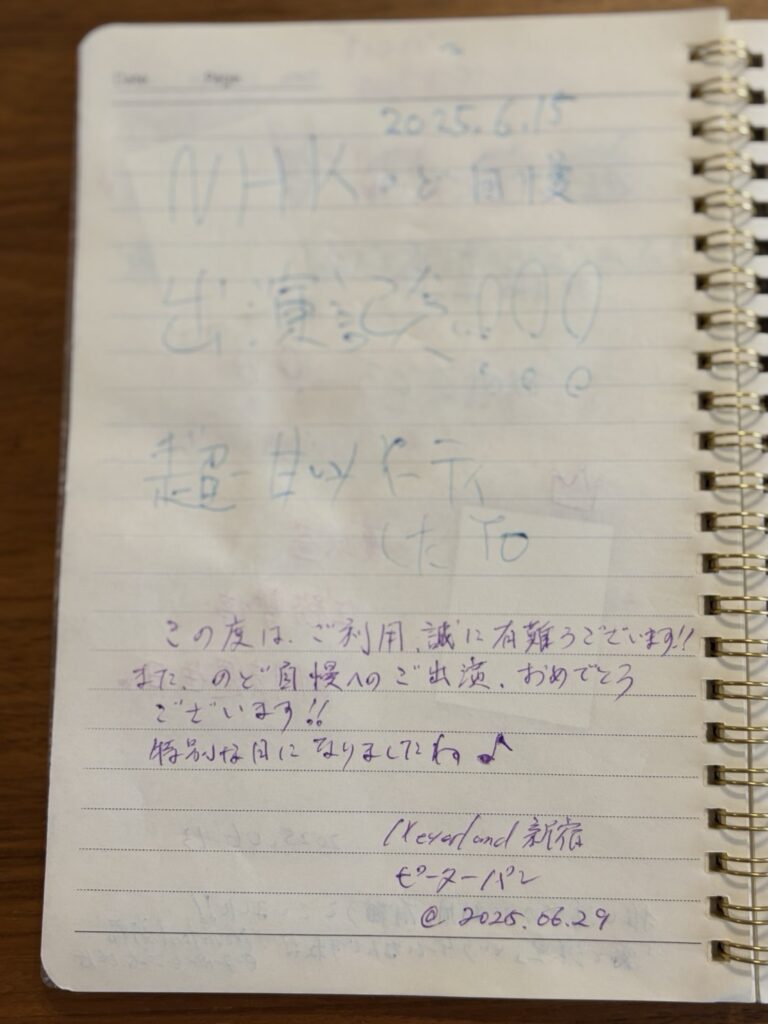 Date Page
2025.6.15
NHKのど自慢
出演記念.000
超甘いパーティ
したYO
この度は、ご利用、誠に有難うございます!!
また、のど自慢へのご出演、おめでとう
ございます!!
特別な日になりましたね♪
Neverland 新宿
ピーターパン
@2025.06.29